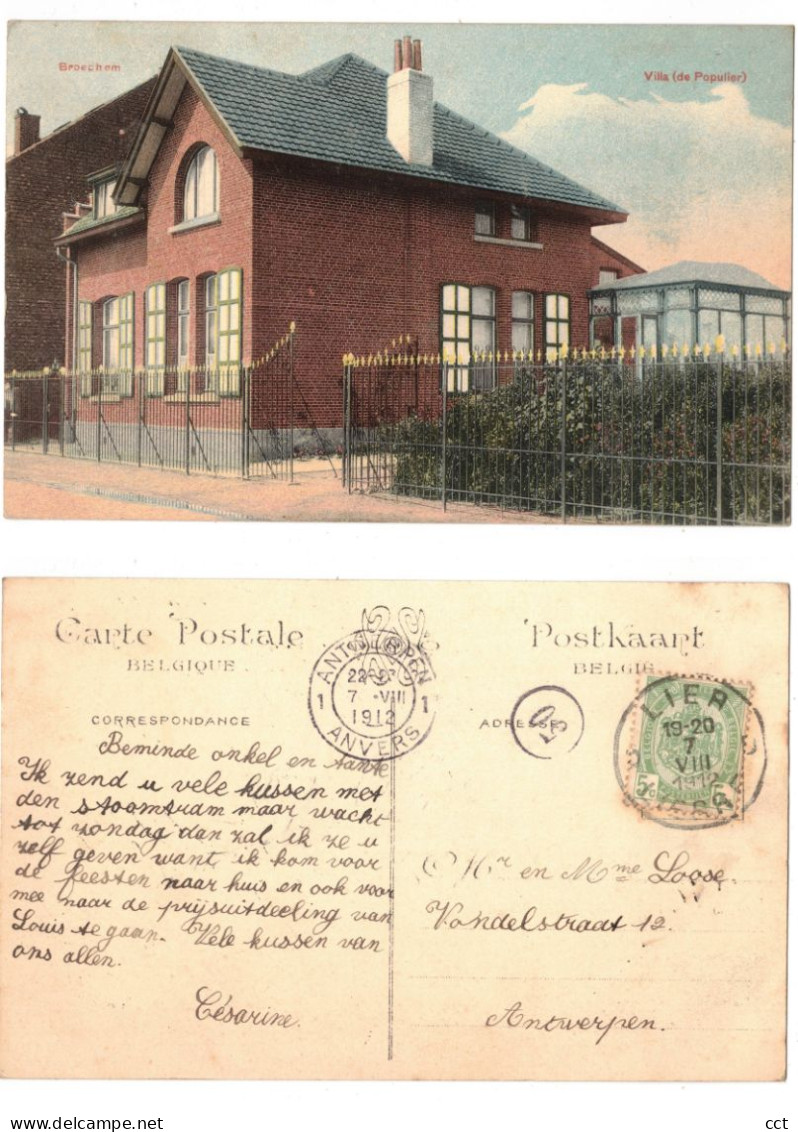 Broechem
Villa (de Populier)
Carte Postale
BELGIQUE
Postkaart
BELGIE
CORRESPONDANCE
ADRESSE
ANTWERPEN
1 7 -VIII 1
1912
ANVERS
LIER
19-20
7
VIII
1912
Beminde onkel en tante
Ik zend u vele kussen met
den stoomtram maar wacht
tot zondag dan zal ik ze u
zelf geven want ik kom voor
de feesten naar huis en ook voor
mee naar de prijsuitdeeling van
Louis te gaan. Vele kussen van
ons allen.
Césarine.
Mr en Mme Loose.
Vondelstraat 12.
Antwerpen.
delcampe.net
cct